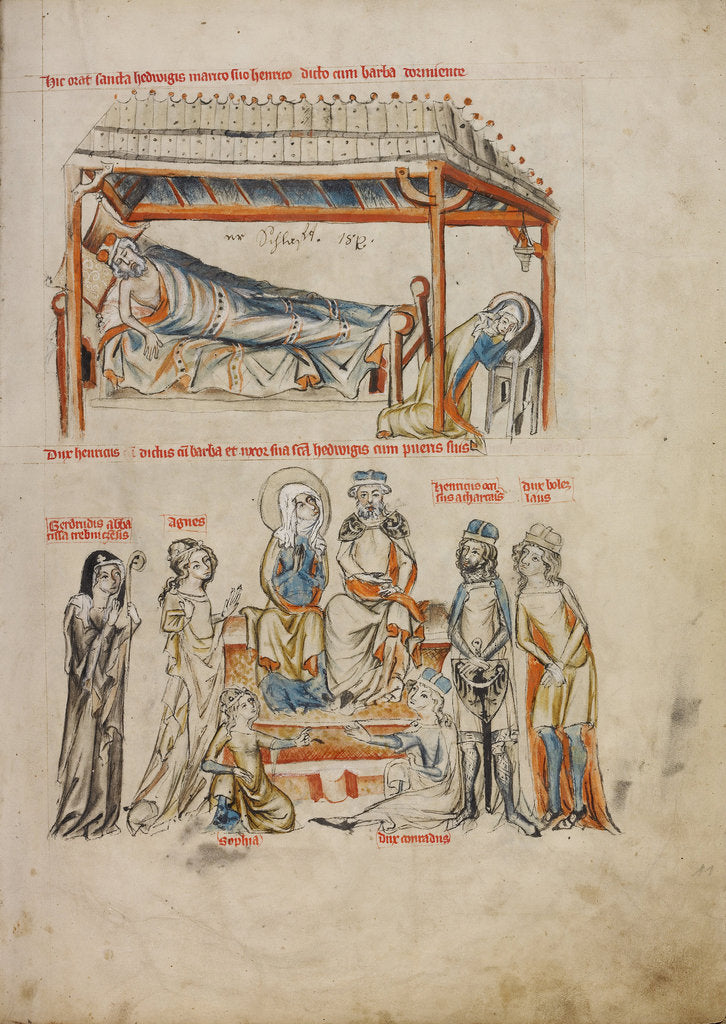 hic orat sancta hedwigis marito suo henrico dicto cum barba dormiente
Dux henricus dictus cū barba et uxor sua scā hedwigis cum pueris suis
Gerdrudis abba
tissa trebnicensis
Agnes
henricus occi
sus a thartaris
dux bolez
laus
Sophia
dux conradus